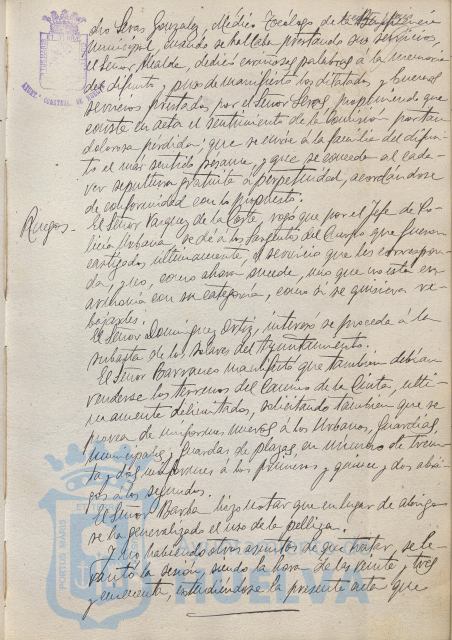 dro Seras Gonzalez, Médico Tocólogo de la Beneficencia
Municipal, cuando se hallaba prestando sus servicios,
el Señor Alcalde, dedicó cariñosas palabras a la memoria
del difunto, puso de manifiesto los dilatados y buenos
servicios prestados por el Señor Seras, proponiendo que
conste en acta el sentimiento de la Comisión por tan
dolorosa pérdida; que se envíe á la familia del difun-
to el más sentido pésame, y que se conceda al cadá-
ver sepultura gratuita á perpetuidad, acordándose
de conformidad con lo propuesto.
Ruegos.-
El Señor Vazquez de la Corte, rogó que por el Jefe de Po-
licía Urbana, se dé a los Sargentos del Cuerpo que fueron
castigados ultimamente, el servicio que les correspon-
da, y no, como ahora sucede, uno que no está en
armonía con su categoría, como si se quisiera re-
bajarles.
El Señor Dominguez Ortiz, interesó se proceda á la
subasta de los solares del Ayuntamiento.
El Señor Barranco manifestó que también debían
venderse los terrenos del Camino de la Cinta, ulti-
mamente delimitados, solicitando también que se
provea de uniformes nuevos á los Urbanos, Guardias
municipales y Guardas de plazas, en número de trein-
ta y dos uniformes á los primeros y quince y dos abri-
gos á los segundos.
El Señor Barba hizo notar que en lugar de abrigos
se ha generalizado el uso de la pelliza.
Y no habiendo otros asuntos de que tratar, se le-
vantó la sesión, siendo la hora de las veinte y tres
y cincuenta, extendiéndose la presente acta que
PORTUS MARIS
HUELVA